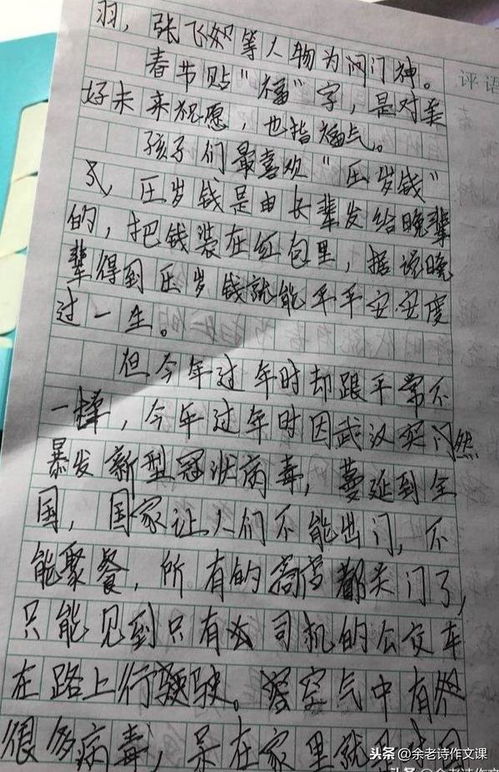 羽，张飞等人物为门神。
评语
春节贴"福"字，是对美
好未来祝愿，也指福气。
孩子们最喜欢"压岁钱"
了，压岁钱是由长辈发给晚辈
的，把钱装在红包里，据说晚
辈得到压岁钱就能平平安安度
过一生。
但今年过年时却跟平常不
一样，今年过年时因武汉突然
暴发新型冠状病毒，蔓延到全
国，国家让人们不能出门，不
能聚餐，所有的都关门了，
只能见到只有司机的公交车
在路上行驶。空气中有
很多病毒，呆在家里就
头条 @余老诗作文课